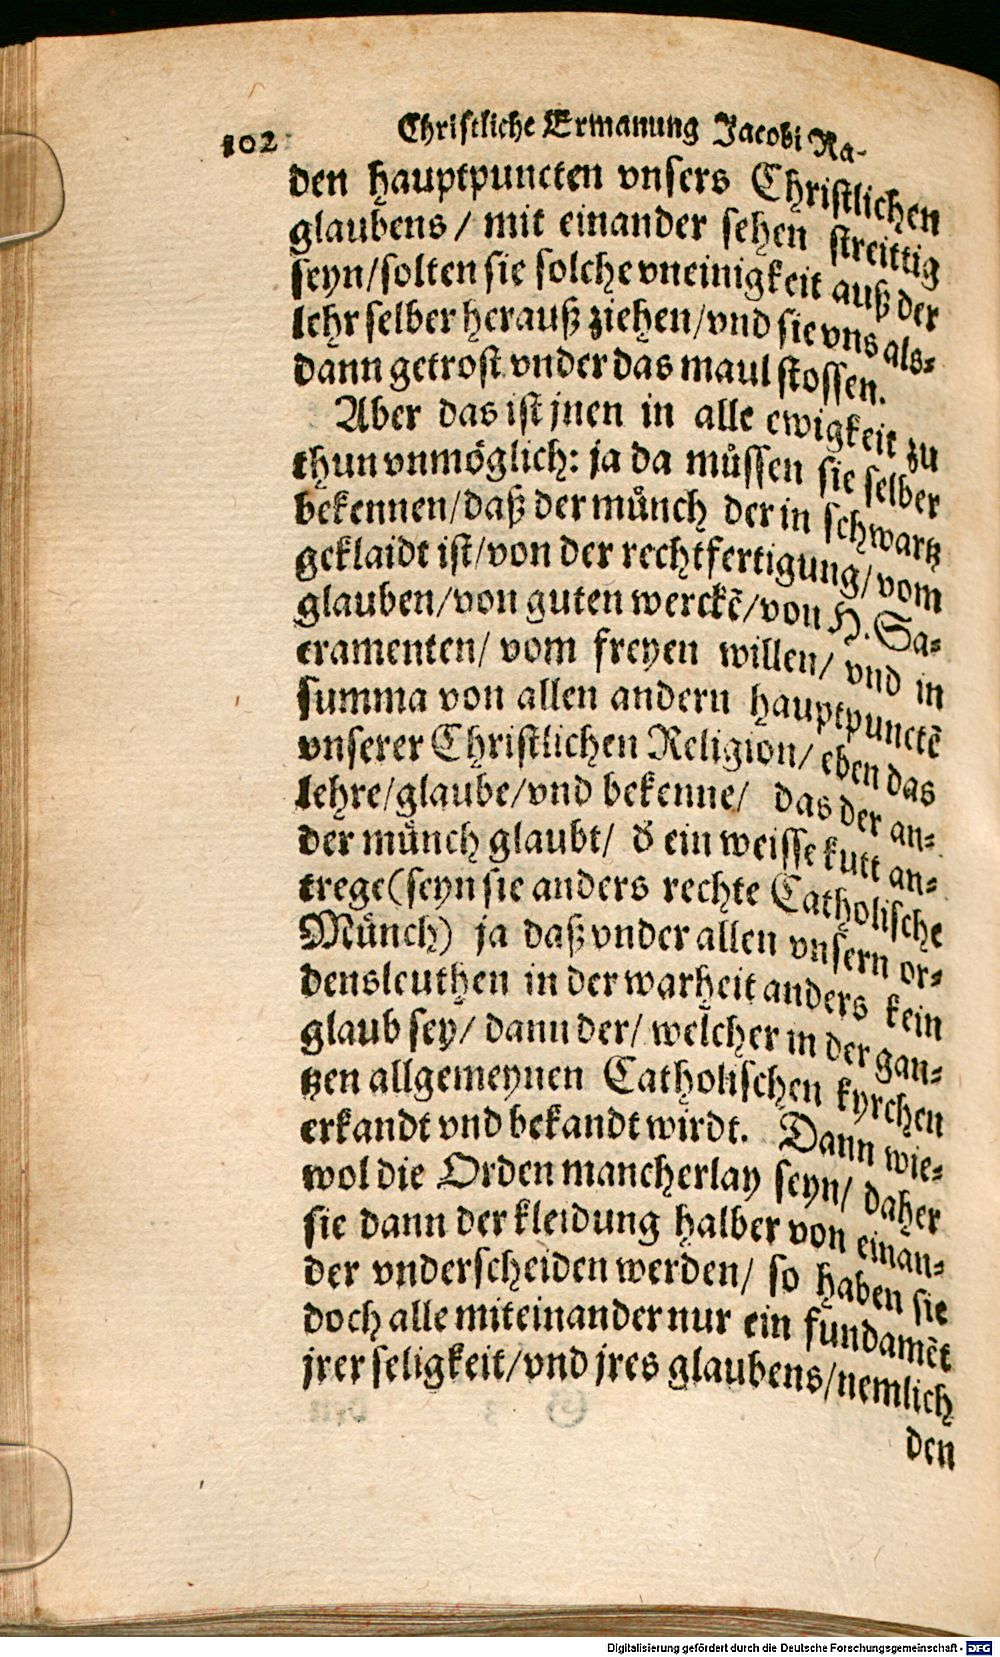 102 Christliche Ermanung Jacobi Ra-
den hauptpuncten vnsers Christlichen
glaubens / mit einander sehen streittig
seyn/solten sie solche vneinigkeit auß der
lehr selber herauß ziehen/vnd sie vns als-
dann getrost vnder das maul stossen.
Aber das ist jnen in alle ewigkeit zu
thun vnmöglich: ja da müssen sie selber
bekennen/daß der münch der in schwartz
geklaidt ist/von der rechtfertigung/vom
glauben/von guten werckē/von H. Sa-
cramenten/ vom freyen willen/ vnd in
summa von allen andern hauptpunctē
vnserer Christlichen Religion/ eben das
lehre/glaube/vnd bekenne/ das der an-
der münch glaubt/ d̕ ein weisse kutt an-
trege(seyn sie anders rechte Catholische
Münch) ja daß vnder allen vnsern or-
densleuthen in der warheit anders kein
glaub sey/ dann der/ welcher in der gan-
tzen allgemeynen Catholischen kyrchen
erkandt vnd bekandt wirdt. Dann wie-
wol die Orden mancherlay seyn/ daher
sie dann der kleidung halber von einan-
der vnderscheiden werden/ so haben sie
doch alle miteinander nur ein fundamēt
jrer seligkeit/vnd jres glaubens/nemlich
den
Digitalisierung gefördert durch die Deutsche Forschungsgemeinschaft - DFG